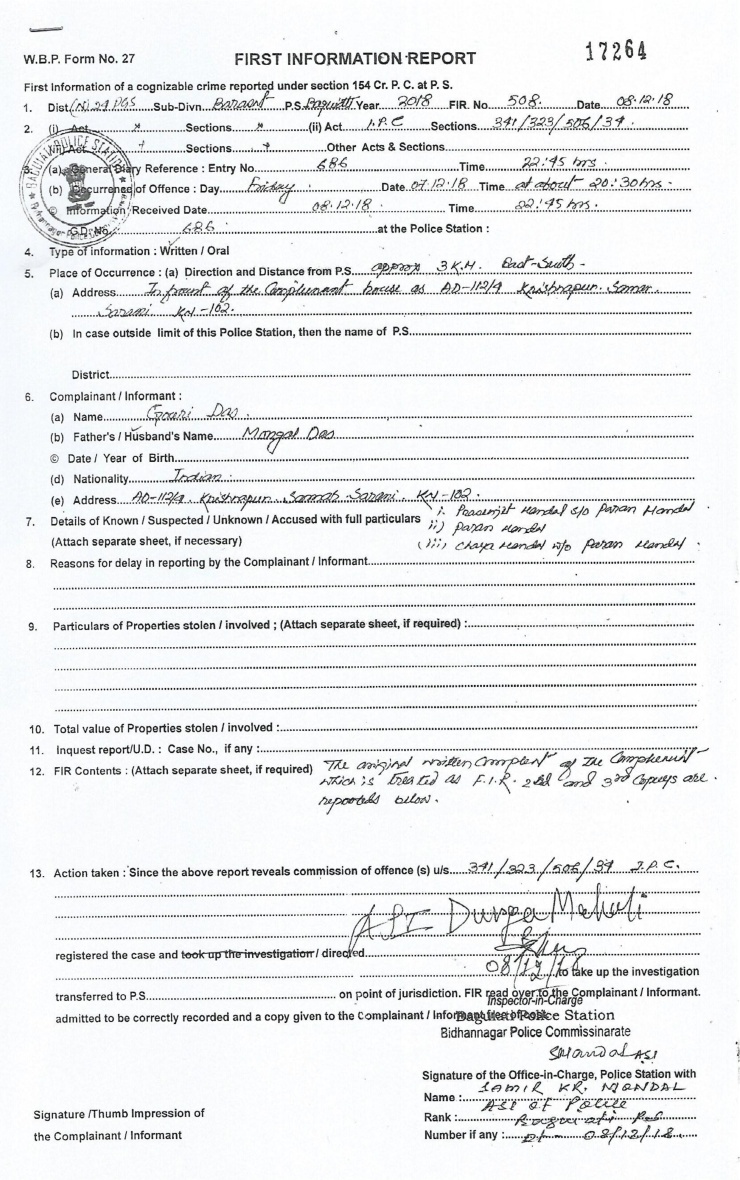 17264
W.B.P. Form No. 27 FIRST INFORMATION REPORT
First Information of a cognizable crime reported under section 154 Cr. P. C. at P. S.
1. Dist (N) 24 PGS Sub-Divn. Barasat P.S. Baguiati Year 2018 FIR. No 508. Date 08.12.18
2. (i) Act x Sections x (ii) Act I.P.C Sections 341/323/506/34.
(iii) Act + Sections + Other Acts & Sections
3. (a) General Diary Reference : Entry No. 686 Time 22:45 hrs.
(b) Occurrence of Offence : Day Friday Date 07.12.18 Time at about 20:30 hrs.
© Information Received Date 08.12.18 Time 22:45 hrs.
G.D. No. 686 at the Police Station :
BAGUIATI POLICE STATION
4. Type of information : Written / Oral
5. Place of Occurrence : (a) Direction and Distance from P.S. approx 3 K.M. East-South -
(a) Address In front of the Complainent house as AD-112/4 Krishnapur Samar
Sarani Kol-102.
(b) In case outside limit of this Police Station, then the name of P.S.
District
6. Complainant / Informant :
(a) Name Gouri Das.
(b) Father's / Husband's Name Mongal Das
© Date / Year of Birth
(d) Nationality Indian.
(e) Address AD-112/4 Krishnapur Samar Sarani. Kol-102.
7. Details of Known / Suspected / Unknown / Accused with full particulars i. Mandal s/o Paran Mandal
(Attach separate sheet, if necessary) ii) Paran Mandal
(iii) Chaya Mandal w/o Paran Mandal.
8. Reasons for delay in reporting by the Complainant / Informant
9. Particulars of Properties stolen / involved ; (Attach separate sheet, if required) :
10. Total value of Properties stolen / involved :
11. Inquest report/U.D. : Case No., if any :
12. FIR Contents : (Attach separate sheet, if required) The original written Complent of the Complenent
which is treated as F.I.R. 2nd and 3rd Copeys are.
reporteds below.
13. Action taken : Since the above report reveals commission of offence (s) u/s 341/323/506/34 I.P.C.
ASI Durga Mahali
registered the case and took up the investigation / directed
08/12/18 to take up the investigation
transferred to P.S. on point of jurisdiction. FIR read over to the Complainant / Informant.
Inspector-in-Charge
admitted to be correctly recorded and a copy given to the Complainant / Informant free of cost.
Baguiati Police Station
Bidhannagar Police Commissinarate
SMandal ASI
Signature of the Office-in-Charge, Police Station with
Name : SAMIR KR. MONDAL
ASI of Police
Rank : Baguiati P.S.
Number if any : Dt- 08/12/18
Signature /Thumb Impression of
the Complainant / Informant